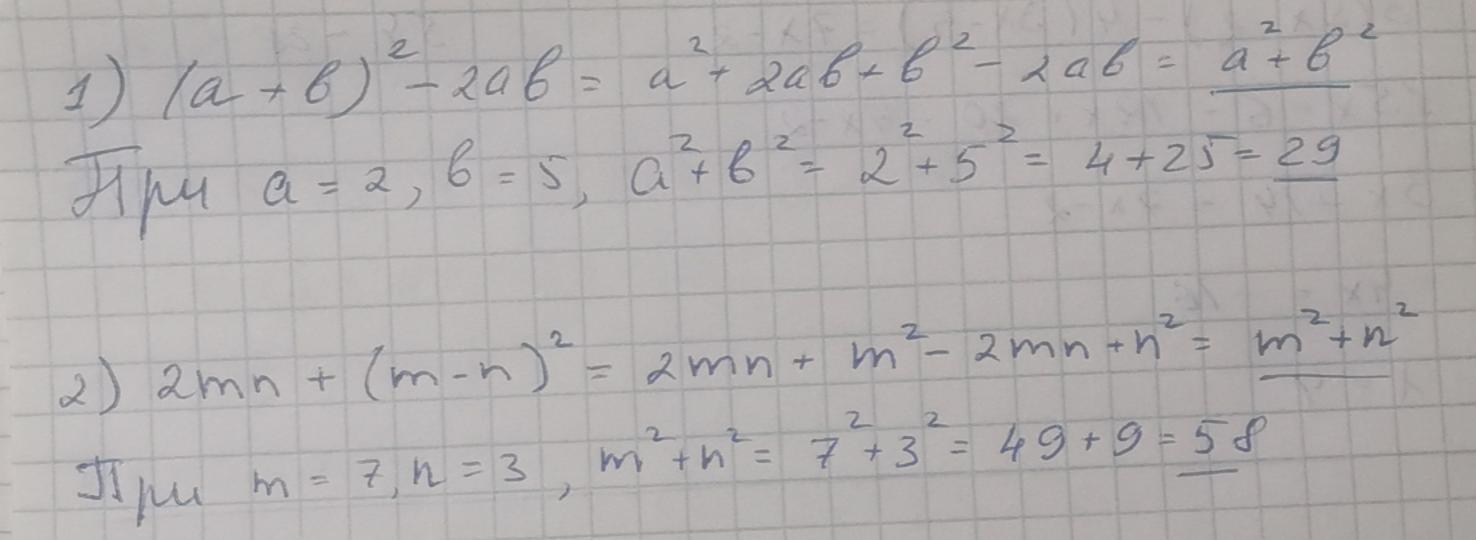 1) (a + b)² - 2ab = a² + 2ab + b² - 2ab = a² + b²
При a = 2, b = 5, a² + b² = 2² + 5² = 4 + 25 = 29
2) 2mn + (m - n)² = 2mn + m² - 2mn + n² = m² + n²
При m = 7, n = 3, m² + n² = 7² + 3² = 49 + 9 = 58